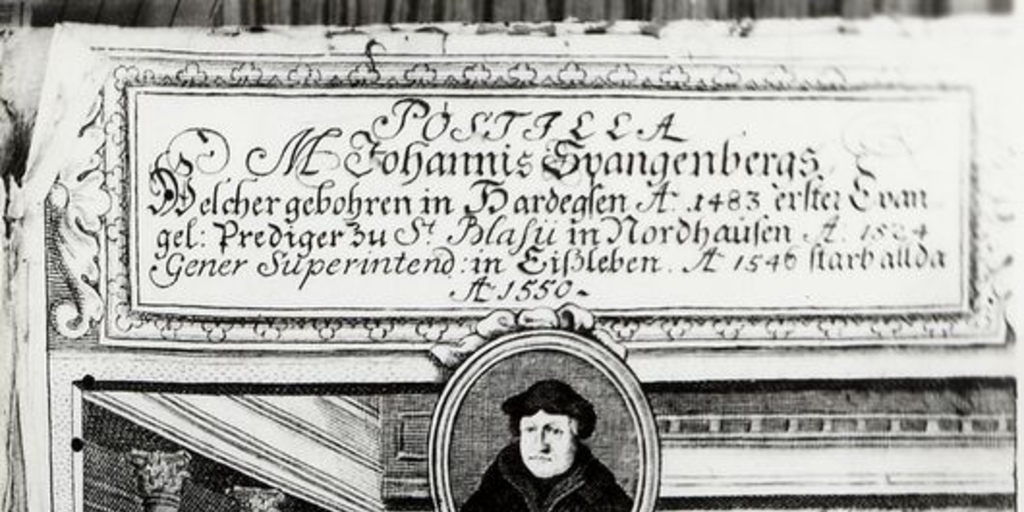 POSTILLA
M Johannis Spangenbergs
Welcher gebohren in Hardegsen Aͦ. 1483 erster Evan
gel: Prediger zu St. Blasii in Nordhausen Aͦ. 1524
Gener Superintend: in Eißleben. Aͦ 1546 starb allda
Aͦ 1550.